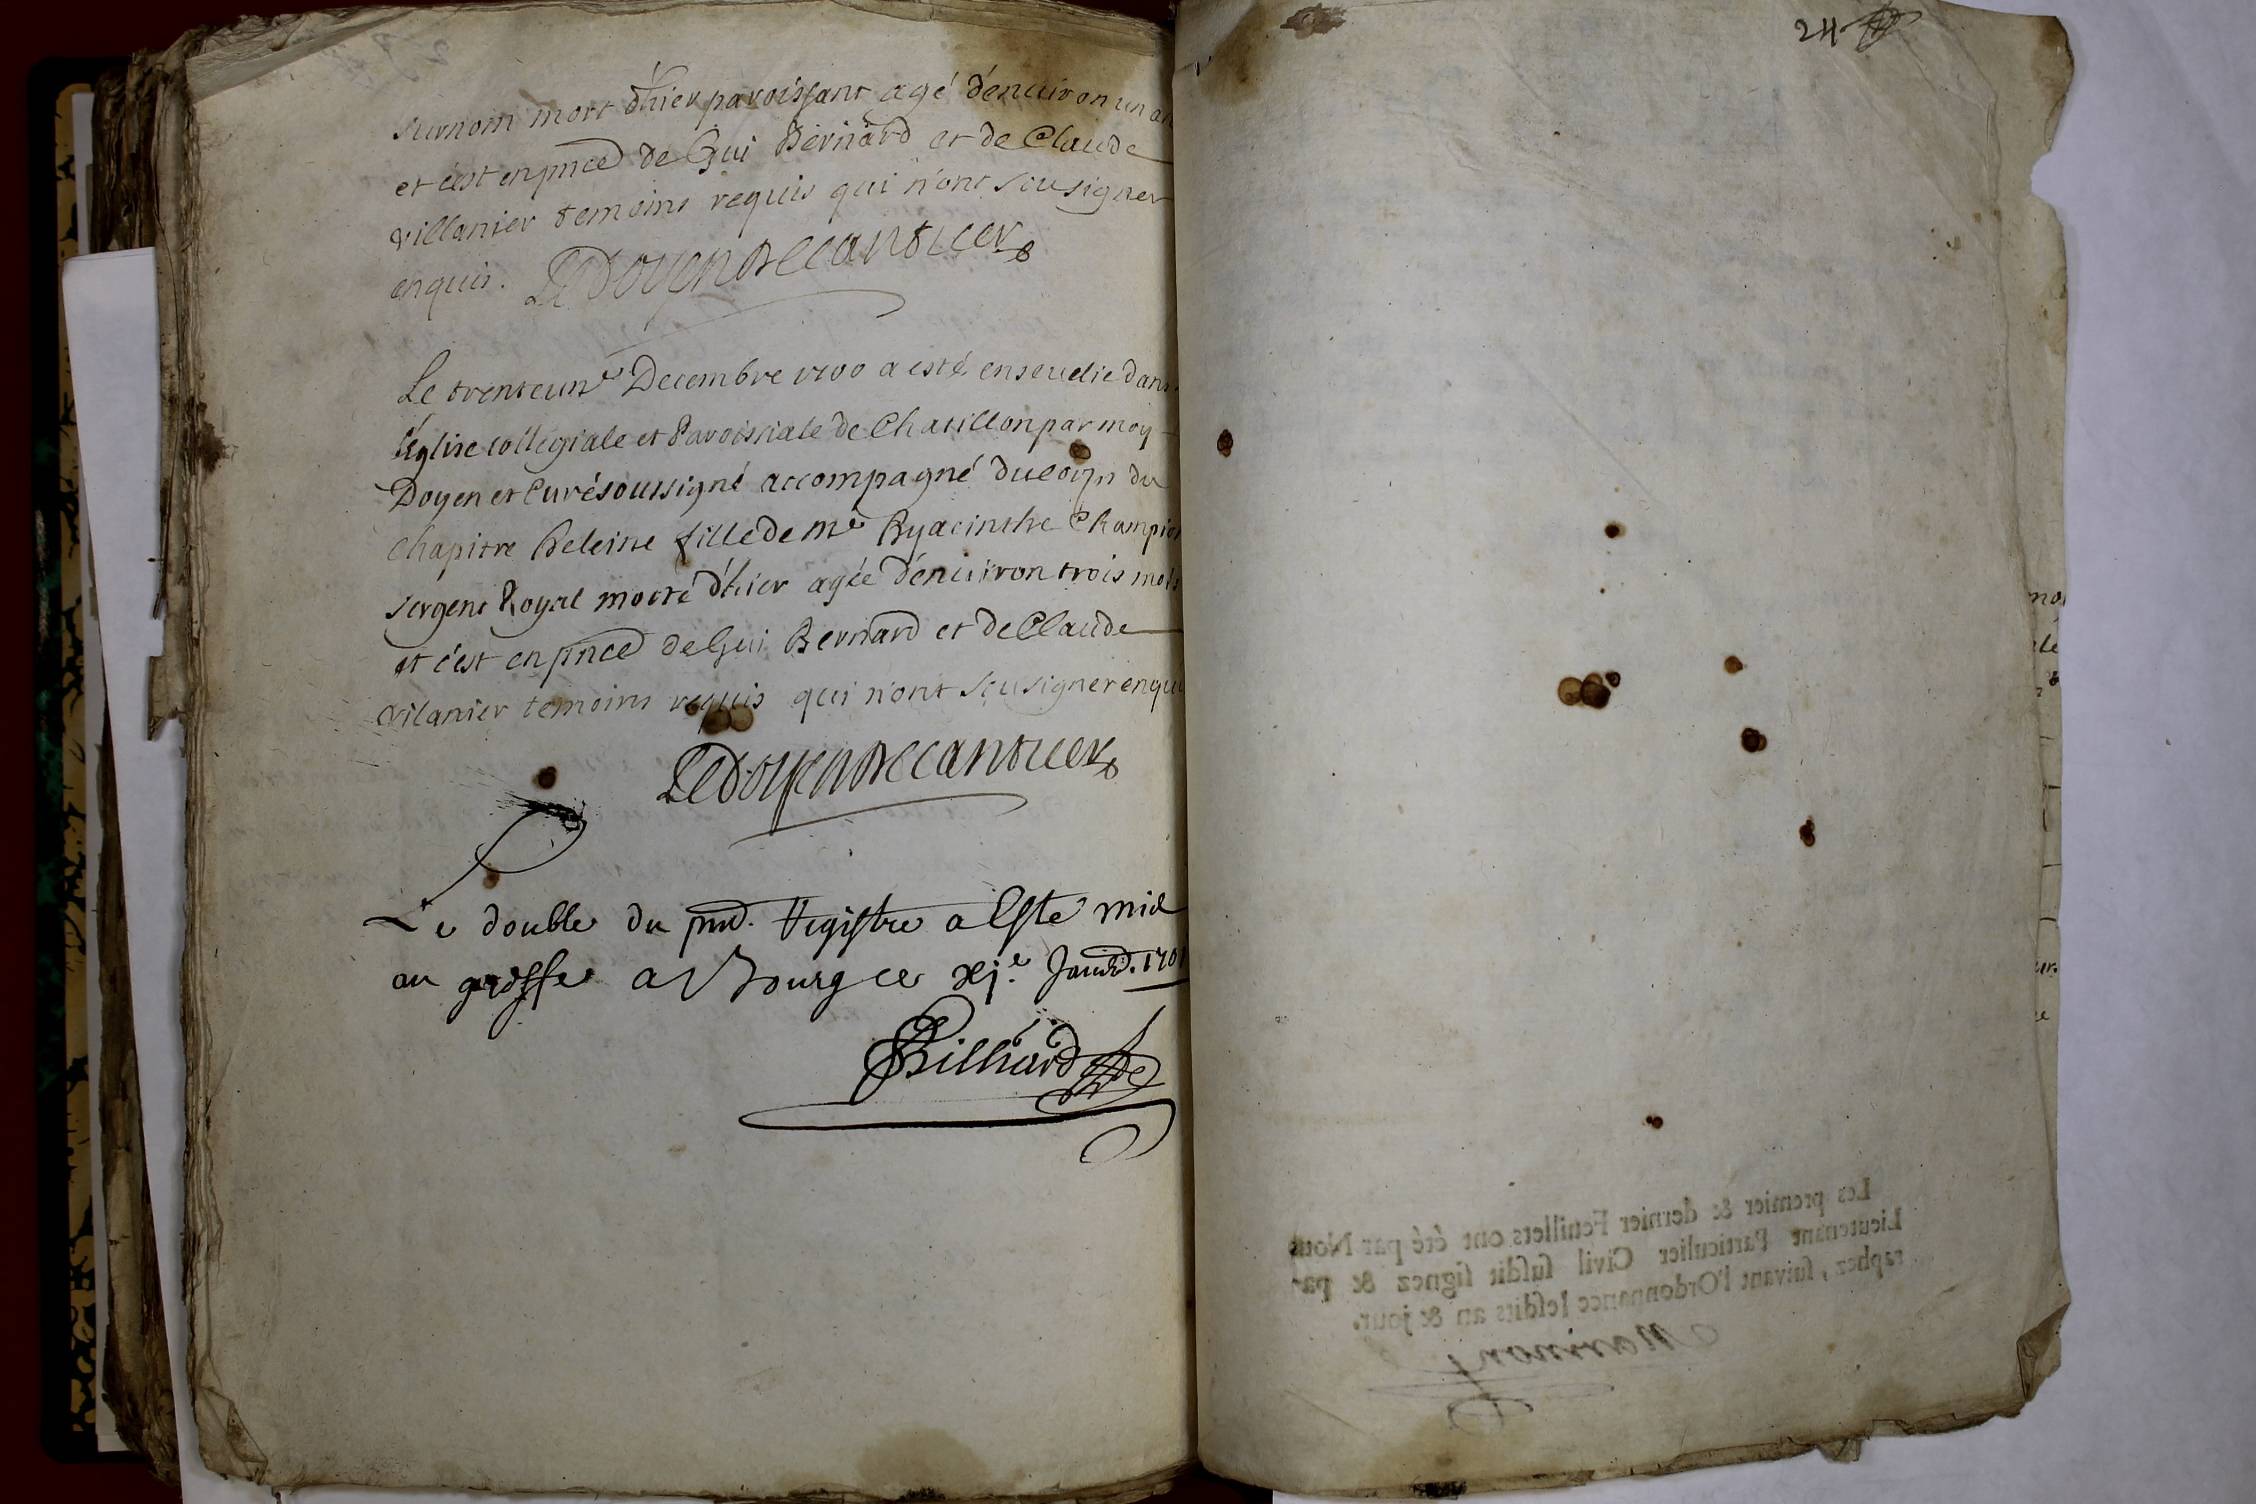 surnom mort d'hier paroissant agé d'enuiron un an
et c'est en pnce de Gui Bernard et de Claude
villanier temoins requis qui n'ont sceu signer
enquis. Le Doyen Decantucer
Le trenteun.e Decembre 1700 a esté enseuelie dans
l'église collégiale et Paroissiale de Chatillon par moy
Doyen et Curé soussigné accompagné du corps du
chapitre heleine fille de me hyacinthe Champion
sergent Royal morte d'hier agée d'enuiron trois mois
et c'est en pnce de Gui Bernard et de Claude
vilanier temoins requis qui n'ont sceu signer enquis
Le Doyen
Le double du pnt. Registre a Esté mis
au greffe a Bourg ce xj.e Janv. 1701
Billiard
24
Les premier & dernier Feuillets ont été par Nous
Lieutenant Particulier Civil suſdit ſignez & pa-
raphez, ſuivant l'Ordonnance leſdits an & jour.